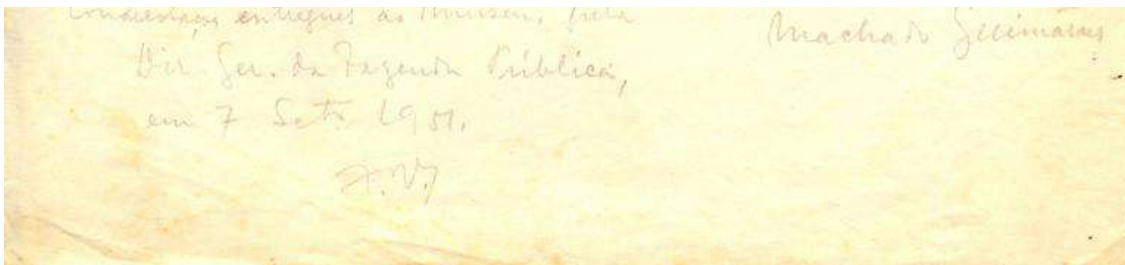 entregues ao Museu, pela
Dir. Ger. da Fazenda Pública,
em 7 Set. 1951.
Machado Guimarães